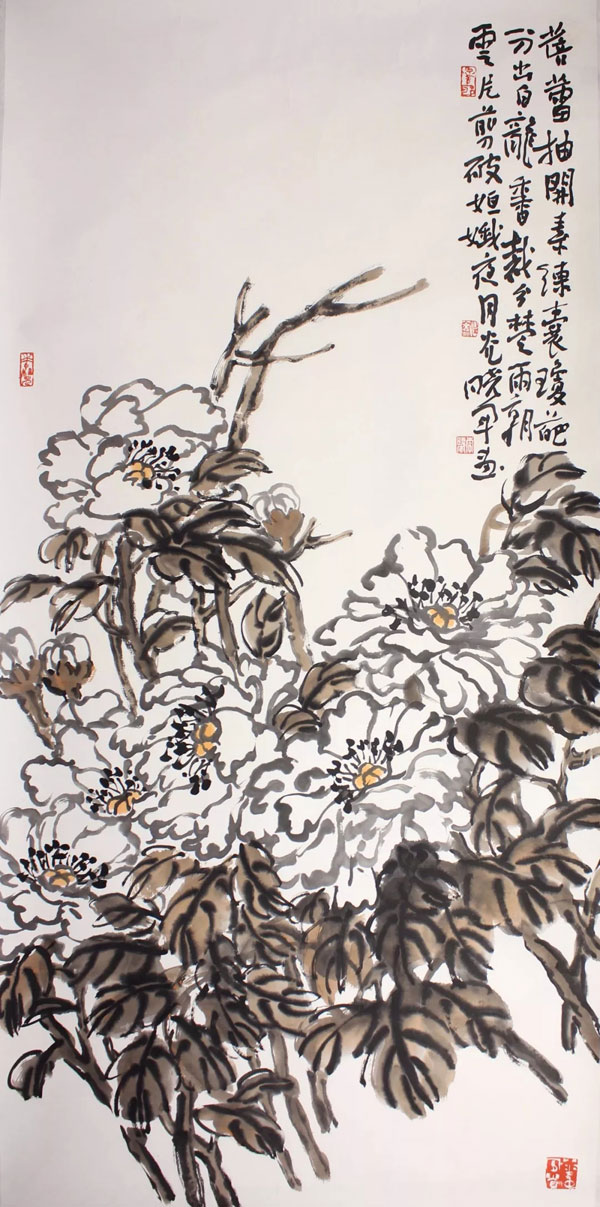 蓓蕾抽開素練囊瓊葩
分出白龍香裁分楚雨朝
雲片剪破姮娥夜月光曉軍畫